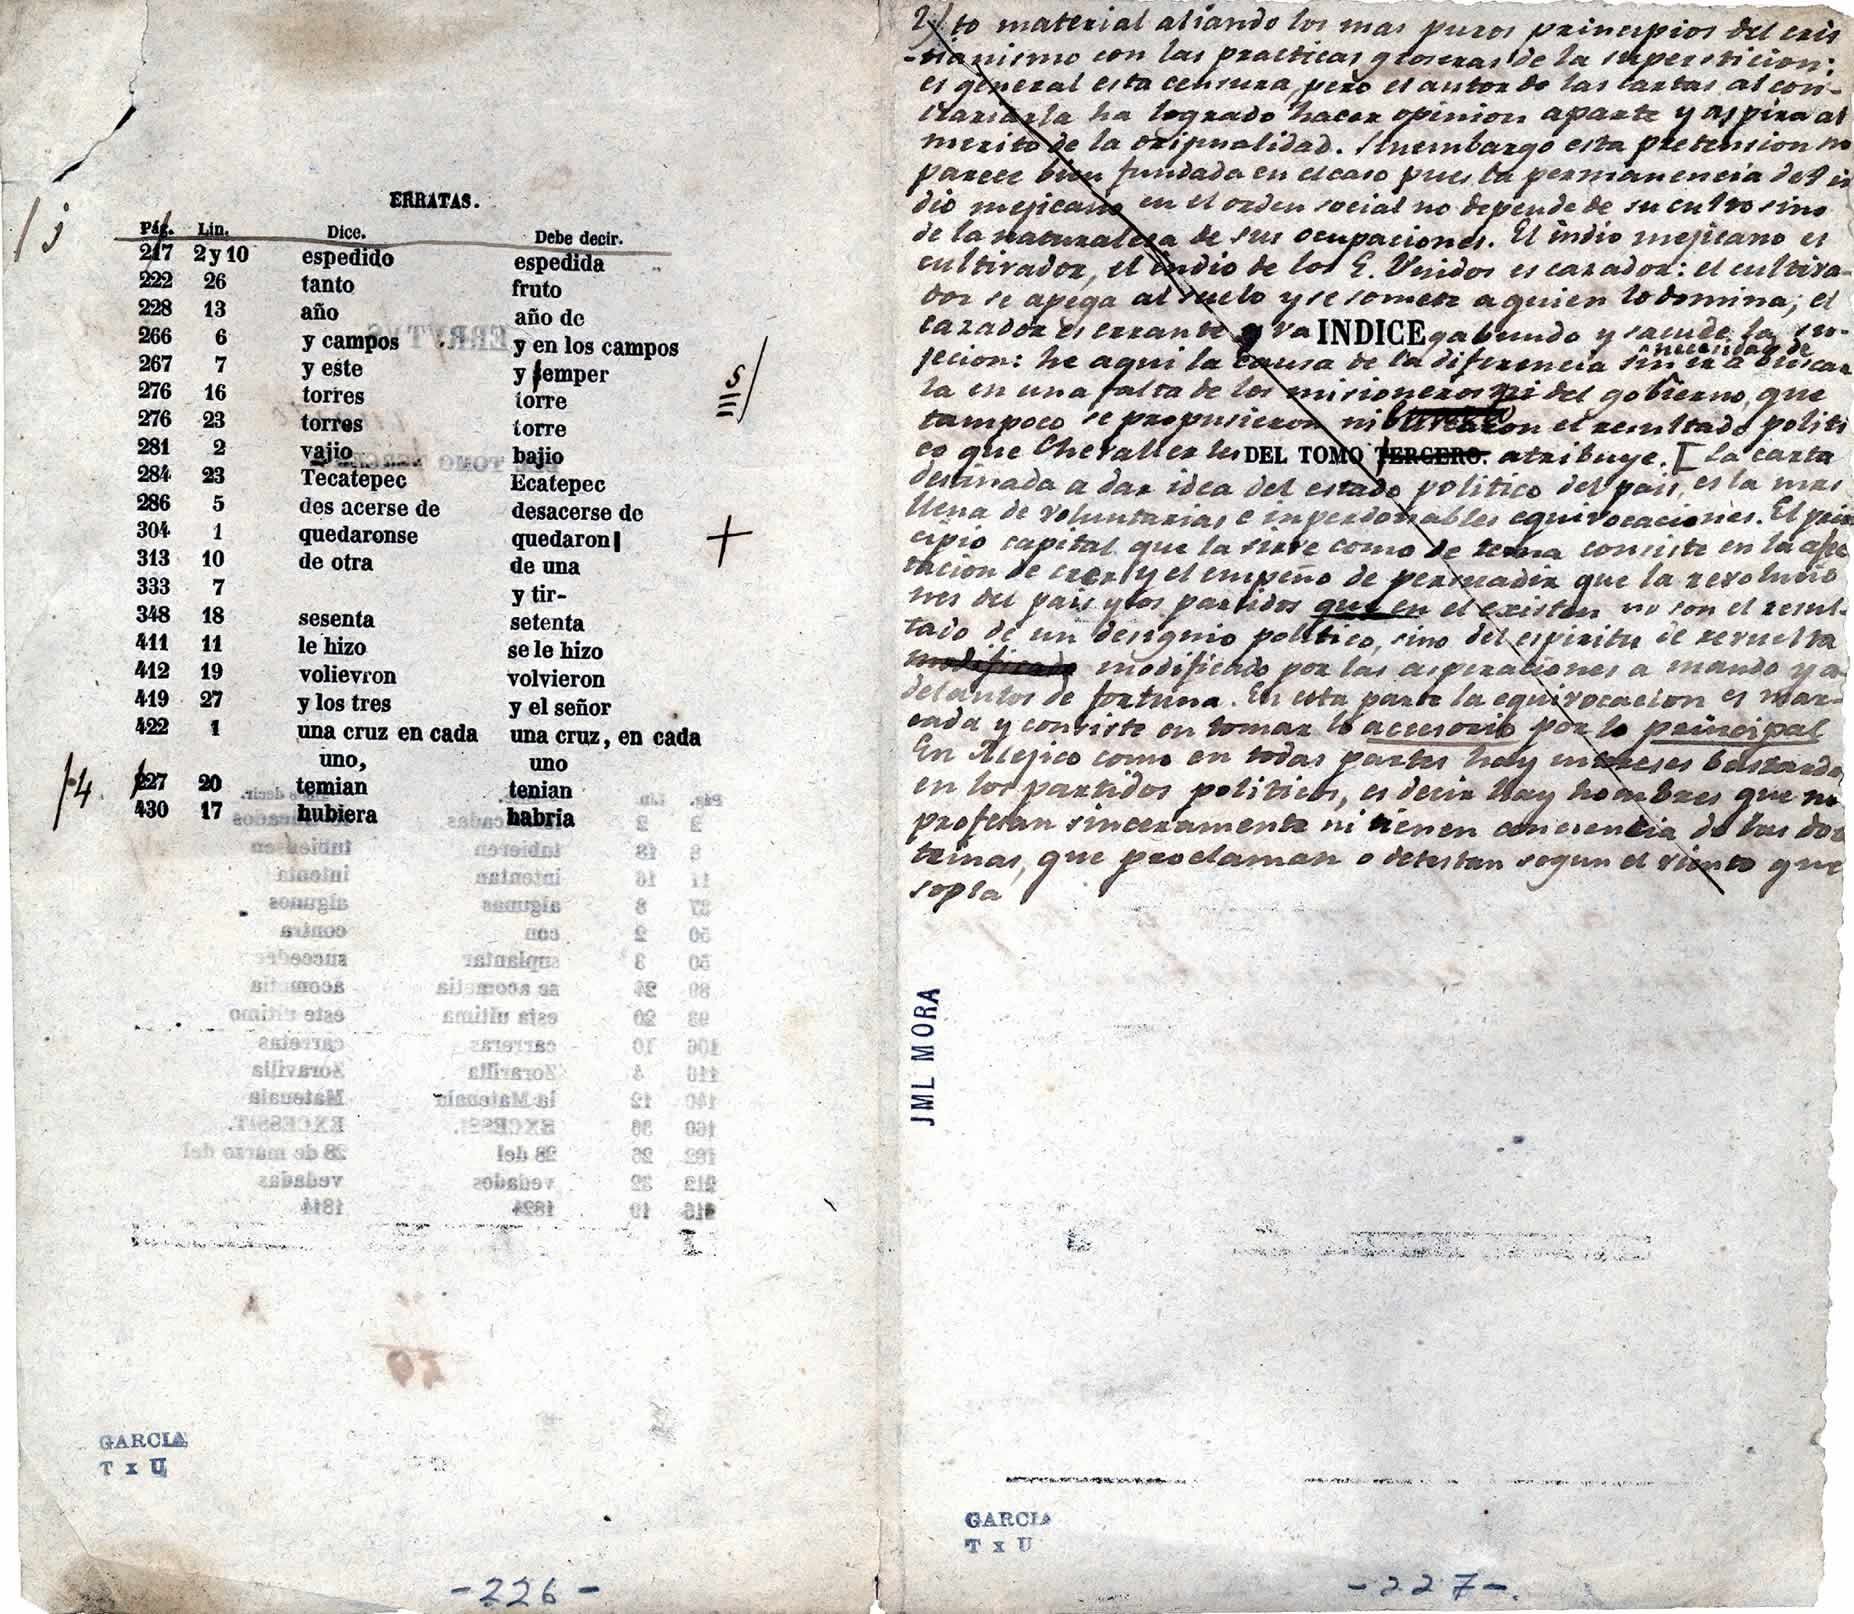 ERRATAS.
Pág. Lin. Dice. Debe decir.
217 2 y 10 espedido espedida
222 26 tanto fruto
228 13 año año de
266 6 y campos y en los campos
267 7 y este y semper
276 16 torres torre
276 23 torres torre
281 2 vajio bajio
284 23 Tecatepec Ecatepec
286 5 des acerse de desacerse de
304 1 quedaronse quedaron
313 10 de otra de una
333 7 y tir-
348 18 sesenta setenta
411 11 le hizo se le hizo
412 19 volievron volvieron
419 27 y los tres y el señor
422 1 una cruz en cada una cruz, en cada
uno, uno
227 20 temian tenian
430 17 hubiera habria
j
S
4
GARCIA
T x U
-226-
2/ to material aliando los mas puros principios del cris
-tianismo con las practicas groseras de la supersticion:
es general esta censura, pero el autor de las cartas al con-
trariarla ha logrado hacer opinion aparte y aspira al
merito de la orijinalidad. Sinembargo esta pretension no
parece bien fundada en el caso pues la permanencia del in
dio mejicano en el orden social no depende de su culto sino
de la naturalesa de sus ocupaciones. El indio mejicano es
cultivador, el indio de los E. Unidos es cazador: el cultiva-
dor se apega al suelo y se somete a quien lo domina; el
cazador es errante y va INDICE gabundo y sacude la su-
jecion: he aqui la causa de la diferencia sin necesidad de buscar
la en una falta de los misioneros ni del gobierno, que
tampoco se propusieron ni buscaron el resultado politi
co que Chevallier les DEL TOMO TERCERO. atribuye. [ La carta
destinada a dar idea del estado politico del pais, es la mas
llena de voluntarias e inperdonables equivocaciones. El prin
cipio capital que la sirve como de tema consiste en la afec
tacion de creer y el empeño de persuadir que la revolucio
nes del pais y los partidos que en el existen no son el resul-
tado de un designio politico, sino del espiritu de revuelta
modificado modificado por las asperaciones a mando y a
delantos de fortuna. En esta parte la equivocacion es mar-
cada y consiste en tomar lo accesorio por lo principal
En Mejico como en todas partes hay intereses bastardos
en los partidos politicos, es decir hay hombres que no
profesan sinceramente ni tienen conciencia de las doc
trinas, que proclaman o detestan segun el viento que
sopla
JML MORA
GARCIA
T x U
-227-